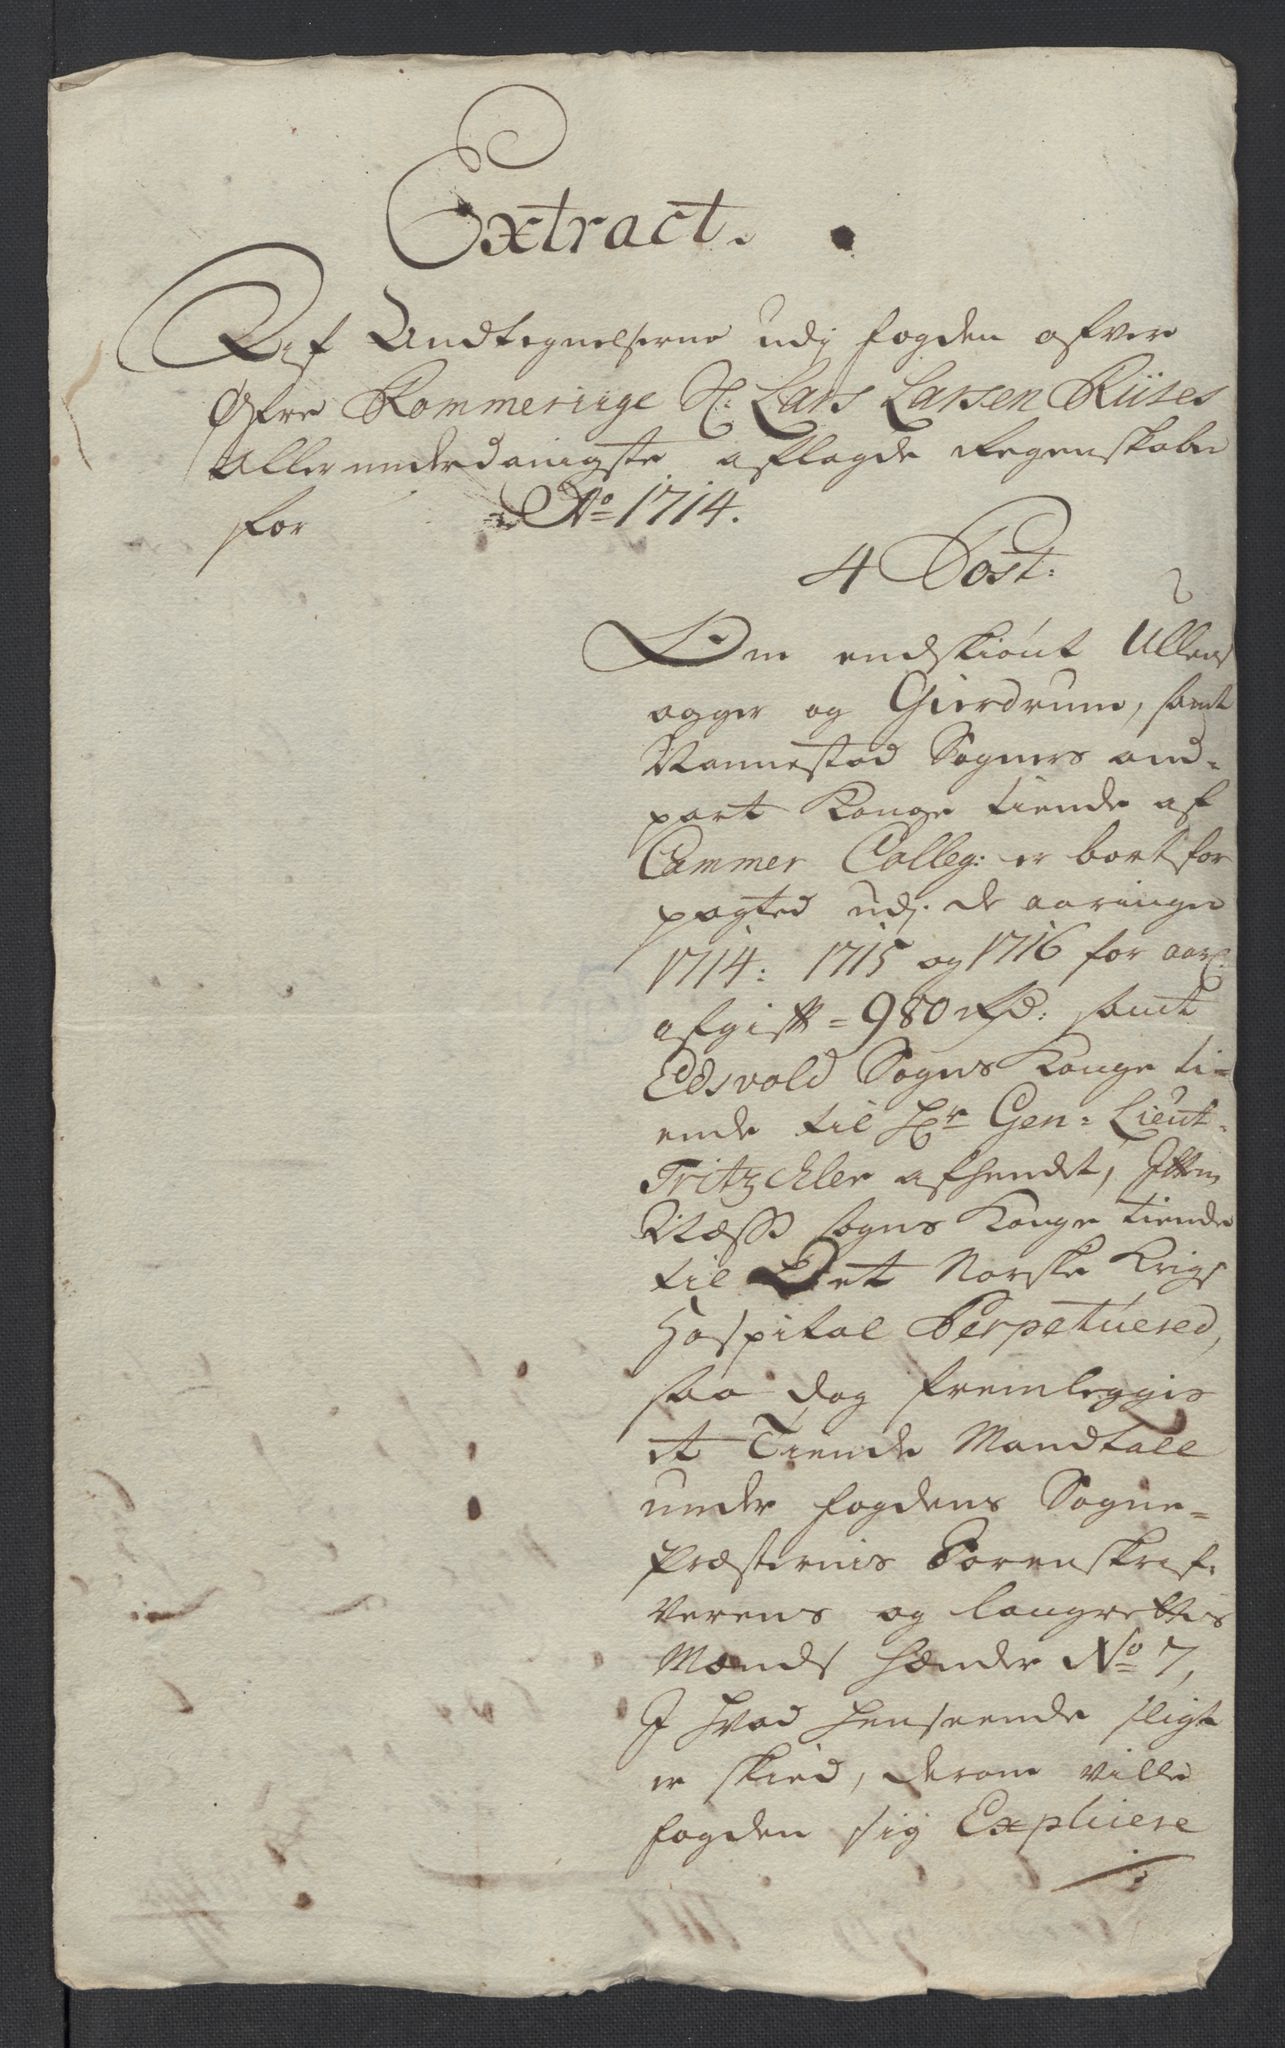 Extract.
Af Andtegnelserne udj fogden ofver
Øfre Rommeriige Sr: Lars Larsen Riises
Allerunderdanigste aflagde Regenskaber
for Ao 1714.
4 Post:
Om endskiønt Ullens
ager og Gierdrum, samt
Nannestad Sogners and-
part Konge tiende af
Cammer Colleg: er bortfor
pagted udj de aaringer
1714: 1715 og 1716 for aarl:
afgifft = 980 Rd: samt
Edsvold Sogns Konge ti-
ende til Hr Gen: Lieut-
Tritzchler afhendet, Ittem
Næss sogns Konge tiende
til Det Norske Krigs
Hospital Perpetuered,
saa dog fremleggis
et Tiende Mandtall
under fogdens Sogne-
Præsternis Sorenskrif-
verens og laugrettis
Mænds hænder No 7,
I hvad henseende sligt
er skied, derom ville
fogden sig Explicere